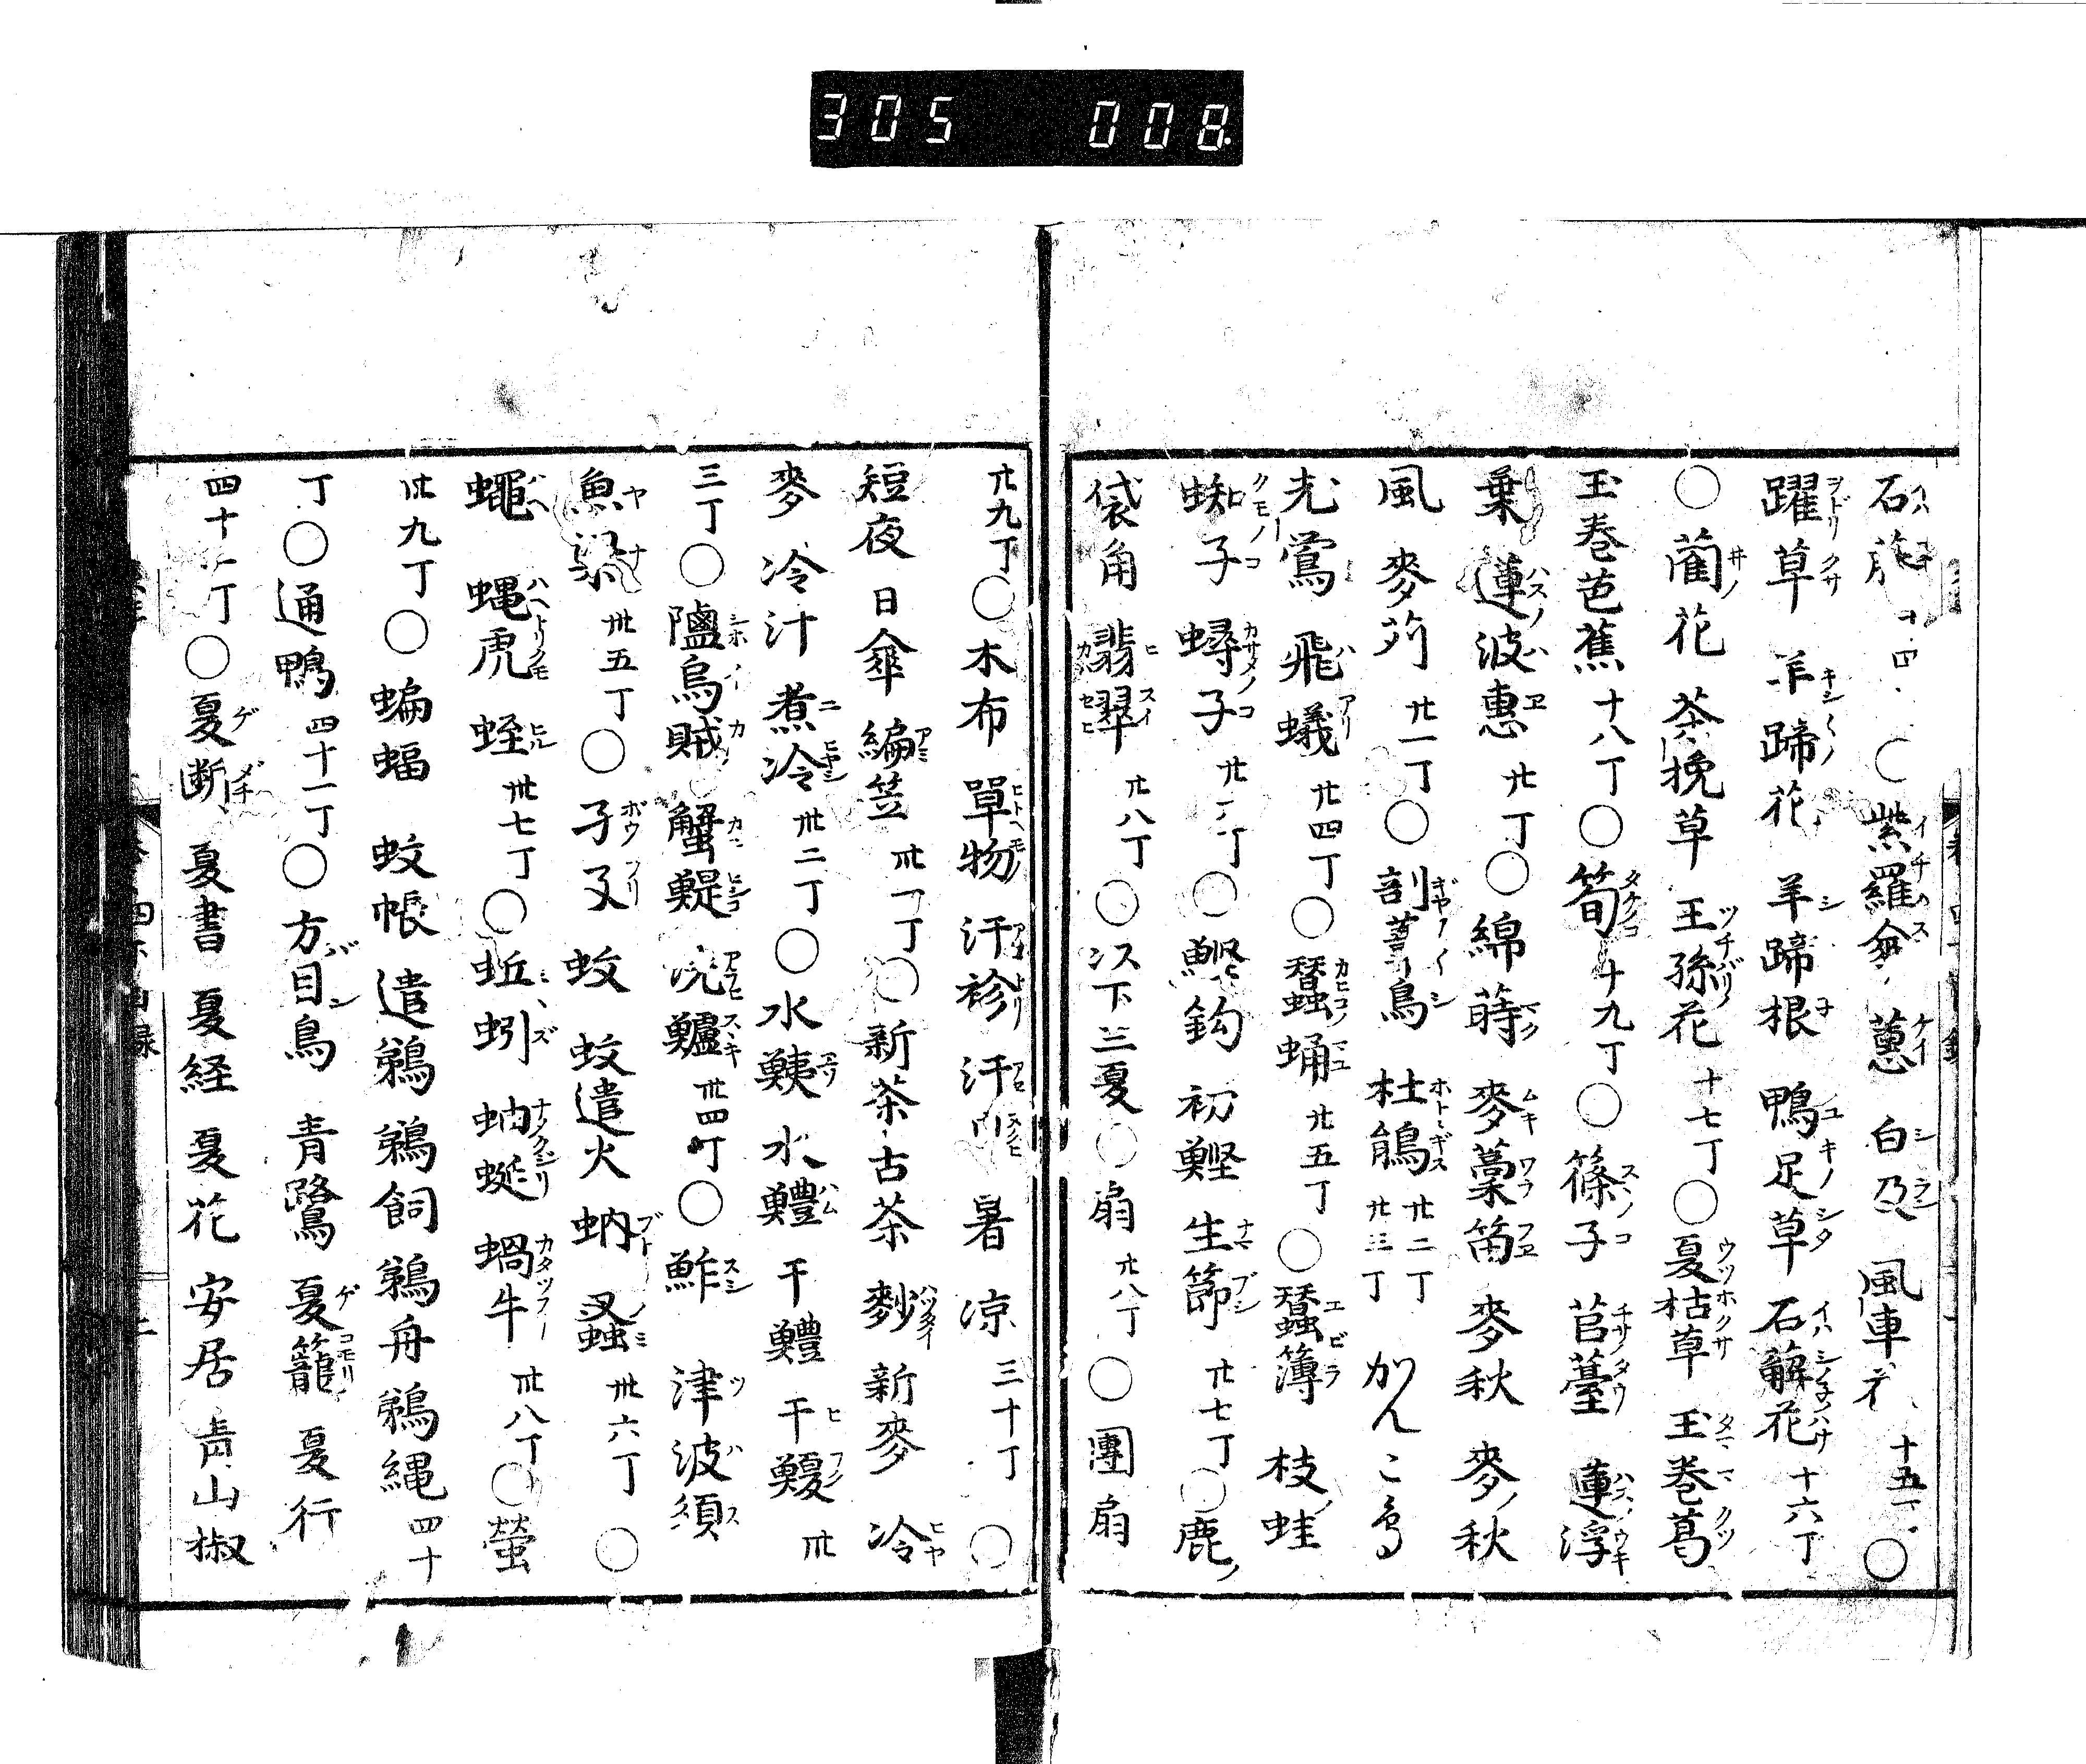 305 008
石 十四 ○紫羅傘 蕙 白及 風車 十五丁 ○
躍草 羊蹄花 羊蹄根 鴨足草 石解花 十六丁
○藺花 茶挽草 王孫花 十七丁 ○夏枯草 玉巻葛
玉巻芭蕉 十八丁 ○筍 十九丁 ○篠子 苣薹 蓮浮
葉 蓮波惠 廿丁 ○綿蒔 麥藁笛 麥秋 麥ノ秋
風 麥苅 廿一丁 ○剖葦鳥 杜鵑 廿二丁 廿三丁 かんこ鳥
老鴬 飛蟻 廿四丁 ○蠶蛹 廿五丁 ○蠶簿 枝蛙
蜘子 蟳子 ○鰹釣 初鰹 生節 廿七丁 ○鹿ノ
袋角 翡翠 廿八丁 ○以下三夏 ○扇 廿八丁 ○團扇
廿九丁 ○木布 單物 汗袗 汗 暑 凉 三十丁 ○
短夜 日傘 編笠 卅一丁 ○新茶 古茶 麨 新麥 冷
麥 冷汁 煮冷 卅二丁 ○水鮧 水鱧 干鱧 干鰒 卅
三丁 ○鹽烏賊 蟹鯷 洗鱸 卅四丁 ○鮓 津波須
魚梁 卅五丁 ○孑孒 蚊 蚊遣火 蚋 蚤 卅六丁 ○
蠅 蝿虎 蛭 卅七丁 ○蚯蚓 蚰蜒 蝸牛 卅八丁 ○螢
卅九丁 ○蝙蝠 蚊帳 遣鵜 鵜飼 鵜舟 鵜縄 四十
丁 ○通鴨 四十一丁 ○方目鳥 青鷺 夏籠 夏行
四十一丁 ○夏断 夏書 夏経 夏花 安居 青山椒